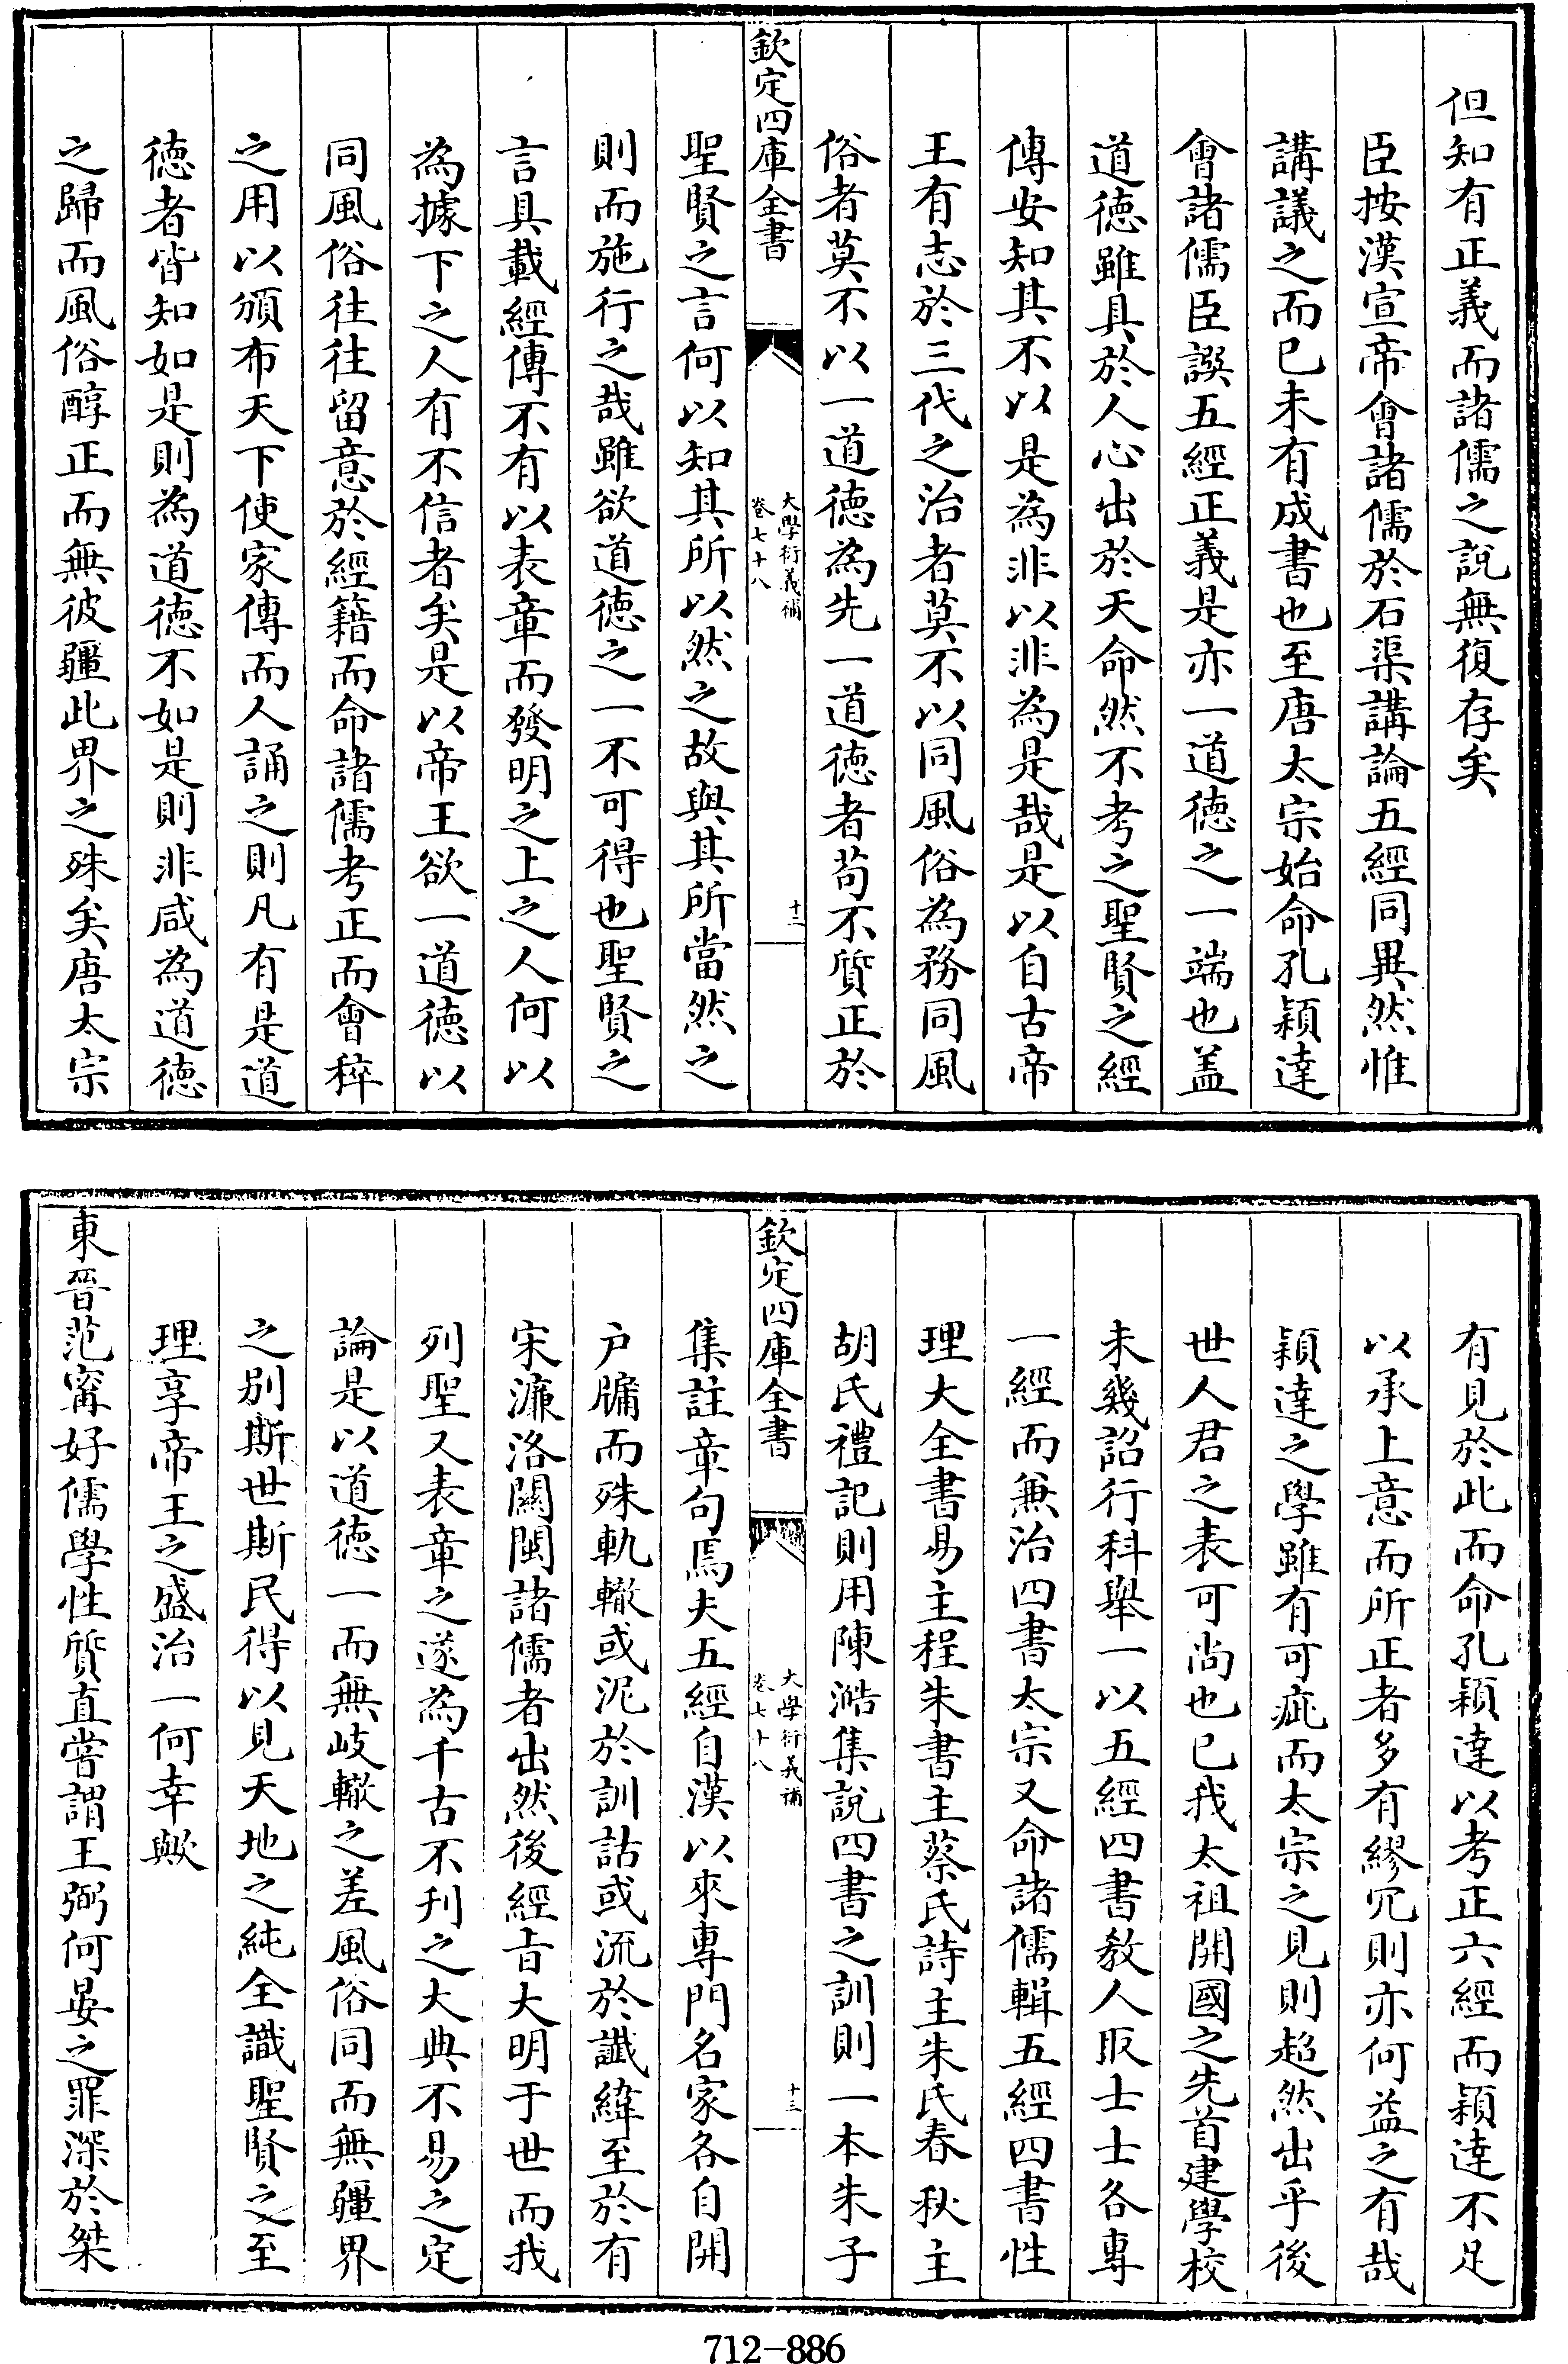 但知有正義而諸儒之說無復存矣
臣按漢宣帝會諸儒於石渠講論五經同異然惟
講議之而已未有成書也至唐太宗始命孔穎達
會諸儒臣譔五經正義是亦一道徳之一端也盖
道徳雖具於人心出於天命然不考之聖賢之經
傳安知其不以是為非以非為是哉是以自古帝
王有志於三代之治者莫不以同風俗為務同風
俗者莫不以一道徳為先一道徳者苟不質正於
欽定四庫全書
大學衍義補
卷七十八
十二
聖賢之言何以知其所以然之故與其所當然之
則而施行之哉雖欲道徳之一不可得也聖賢之
言具載經傳不有以表章而發明之上之人何以
為據下之人有不信者矣是以帝王欲一道徳以
同風俗往往留意於經籍而命諸儒考正而會稡
之用以頒布天下使家傳而人誦之則凡有是道
徳者皆知如是則為道徳不如是則非咸為道徳
之歸而風俗醇正而無彼疆此界之殊矣唐太宗
有見於此而命孔穎達以考正六經而穎達不足
以承上意而所正者多有繆冗則亦何益之有哉
穎達之學雖有可疵而太宗之見則超然出乎後
世人君之表可尚也已我太祖開國之先首建學校
未幾詔行科舉一以五經四書教人取士士各專
一經而兼治四書太宗又命諸儒輯五經四書性
理大全書易主程朱書主蔡氏詩主朱氏春秋主
胡氏禮記則用陳澔集說四書之訓則一本朱子
欽定四庫全書
大學衍義補
卷七十八
十三
集註章句焉夫五經自漢以來專門名家各自開
户牖而殊軌轍或泥於訓詁或流於讖緯至於有
宋濂洛關閩諸儒者出然後經㫖大明于世而我
列聖又表章之遂為千古不刋之大典不易之定
論是以道徳一而無岐轍之差風俗同而無疆界
之别斯世斯民得以見天地之純全識聖賢之至
理享帝王之盛治一何幸歟
東晉范甯好儒學性質直嘗謂王弼何晏之罪深於桀
712-886